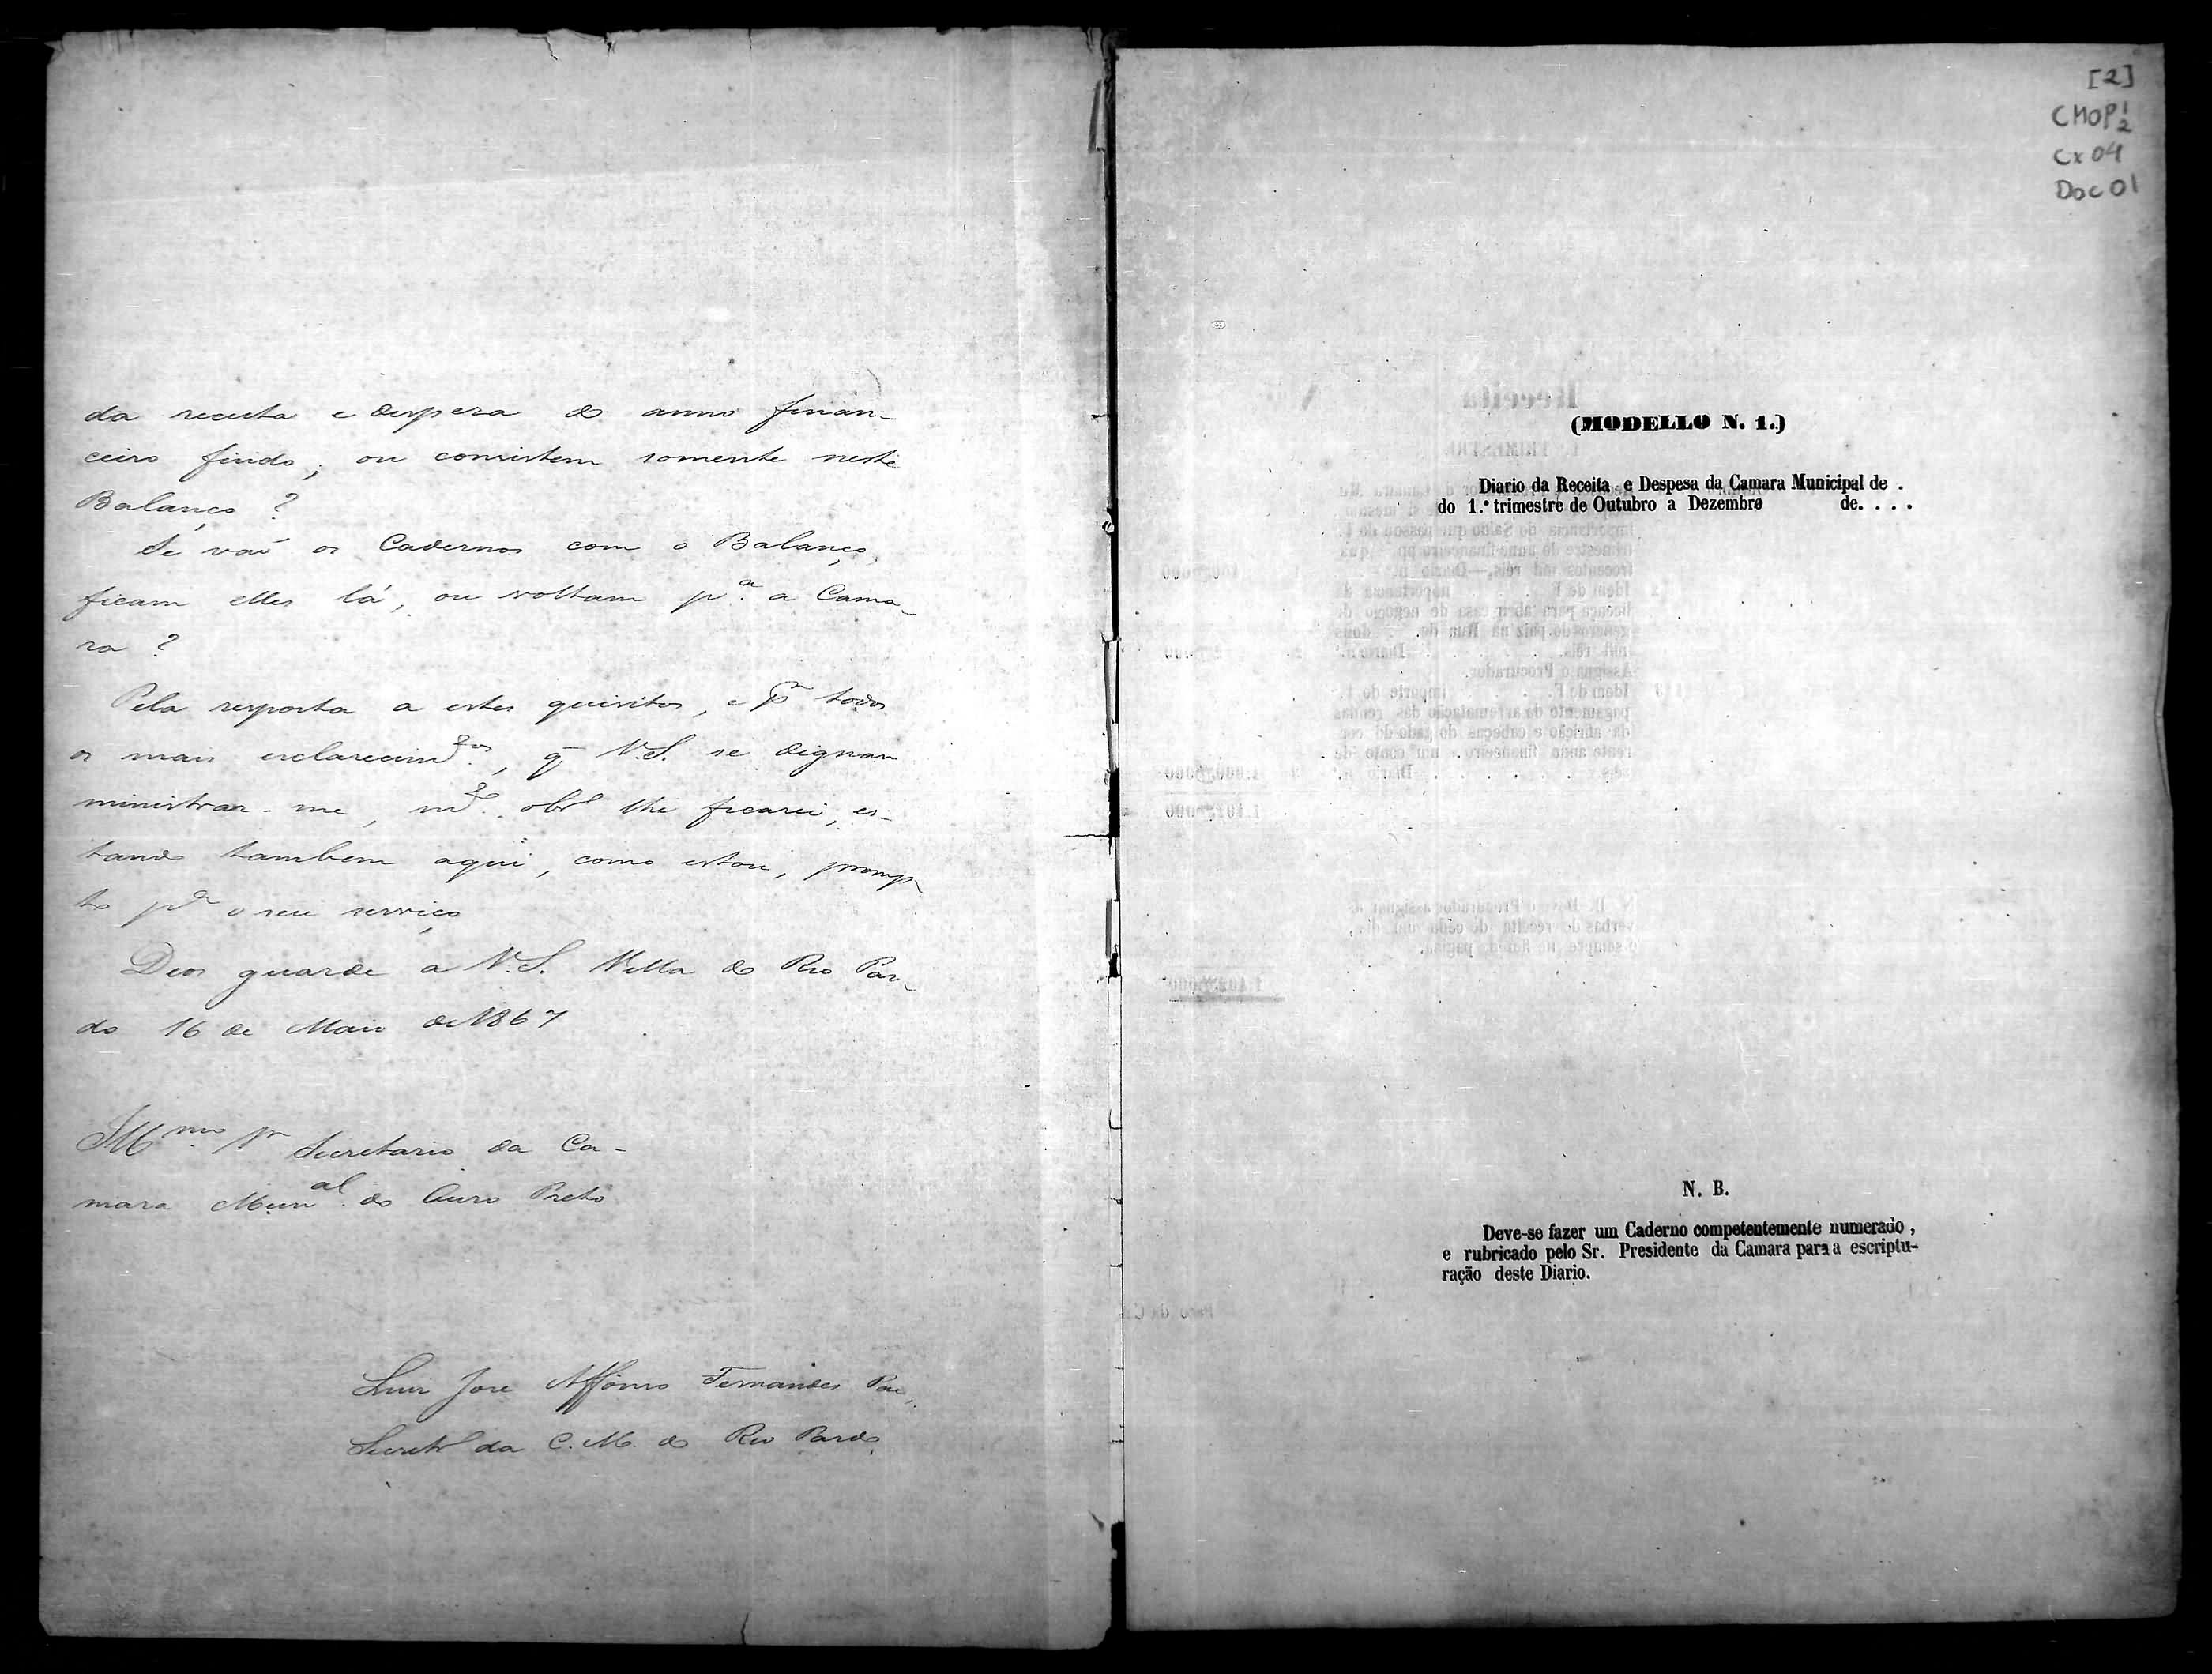 da receita e despesa do anno finan-
ceiro findo; ou consistem somente neste
Balanço?
Se vaõ os Cadernos com o Balanço,
ficam elles lá, ou voltam pª. a Cama-
ra?
Pela resposta a estes quisitos, e pr todos
os mais esclarecimtos., q̃ V.S. se dignar
ministrar-me, mto. obrº lhe ficarei, es-
tando tambem aqui, como estou, promp-
to pª o seu serviço
Deos guarde a V.S. Villa do Rio Par-
do 16 de Maio de 1867
Illmo. Sr Secretario da Ca-
mara Munal. do Ouro Preto
Luis Jose Affonso Fernandes
Secretrº da C.M. do Rio Pardo.
[2]
CMOP 1/2
Cx 04
Doc 01
(MODELLO N. 1.)
Diario da Receita e Despesa da Camara Municipal de .
do 1.º trimestre de Outubro a Dezembro de. . . .
N. B.
Deve-se fazer um Caderno competentemente numerado,
e rubricado pelo Sr. Presidente da Camara para a escriptu-
ração deste Diario.